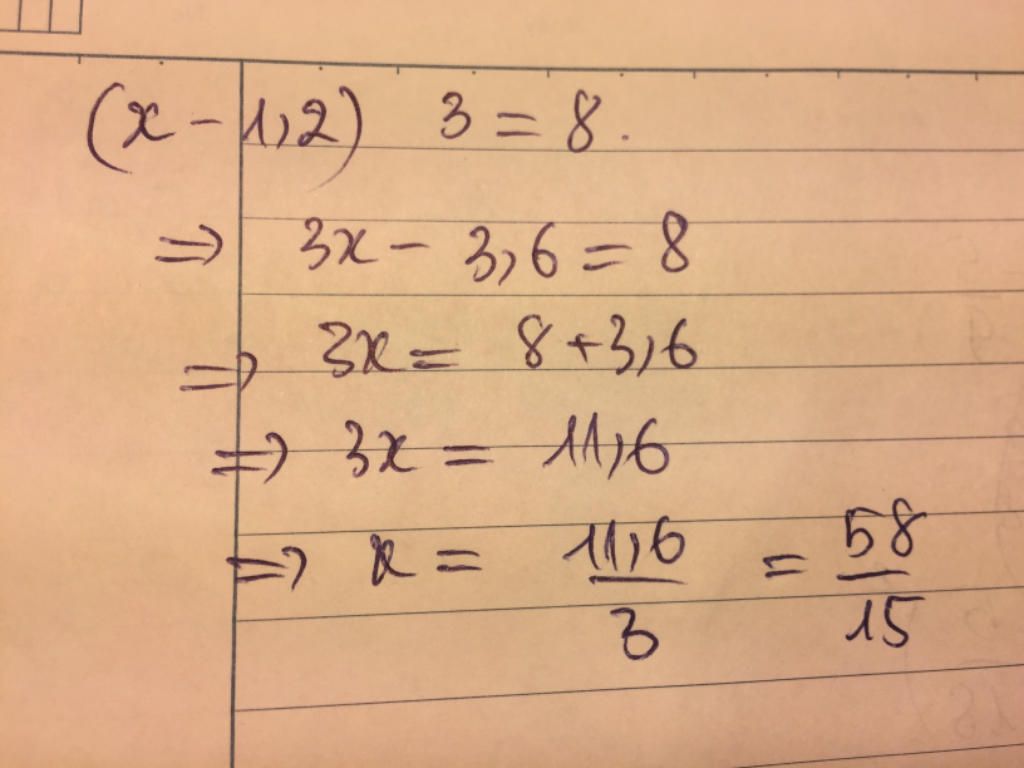 (x - 1,2) 3 = 8.
=> 3x - 3,6 = 8
=> 3x = 8 + 3,6
=> 3x = 11,6
=> x = 11,6/3 = 58/15